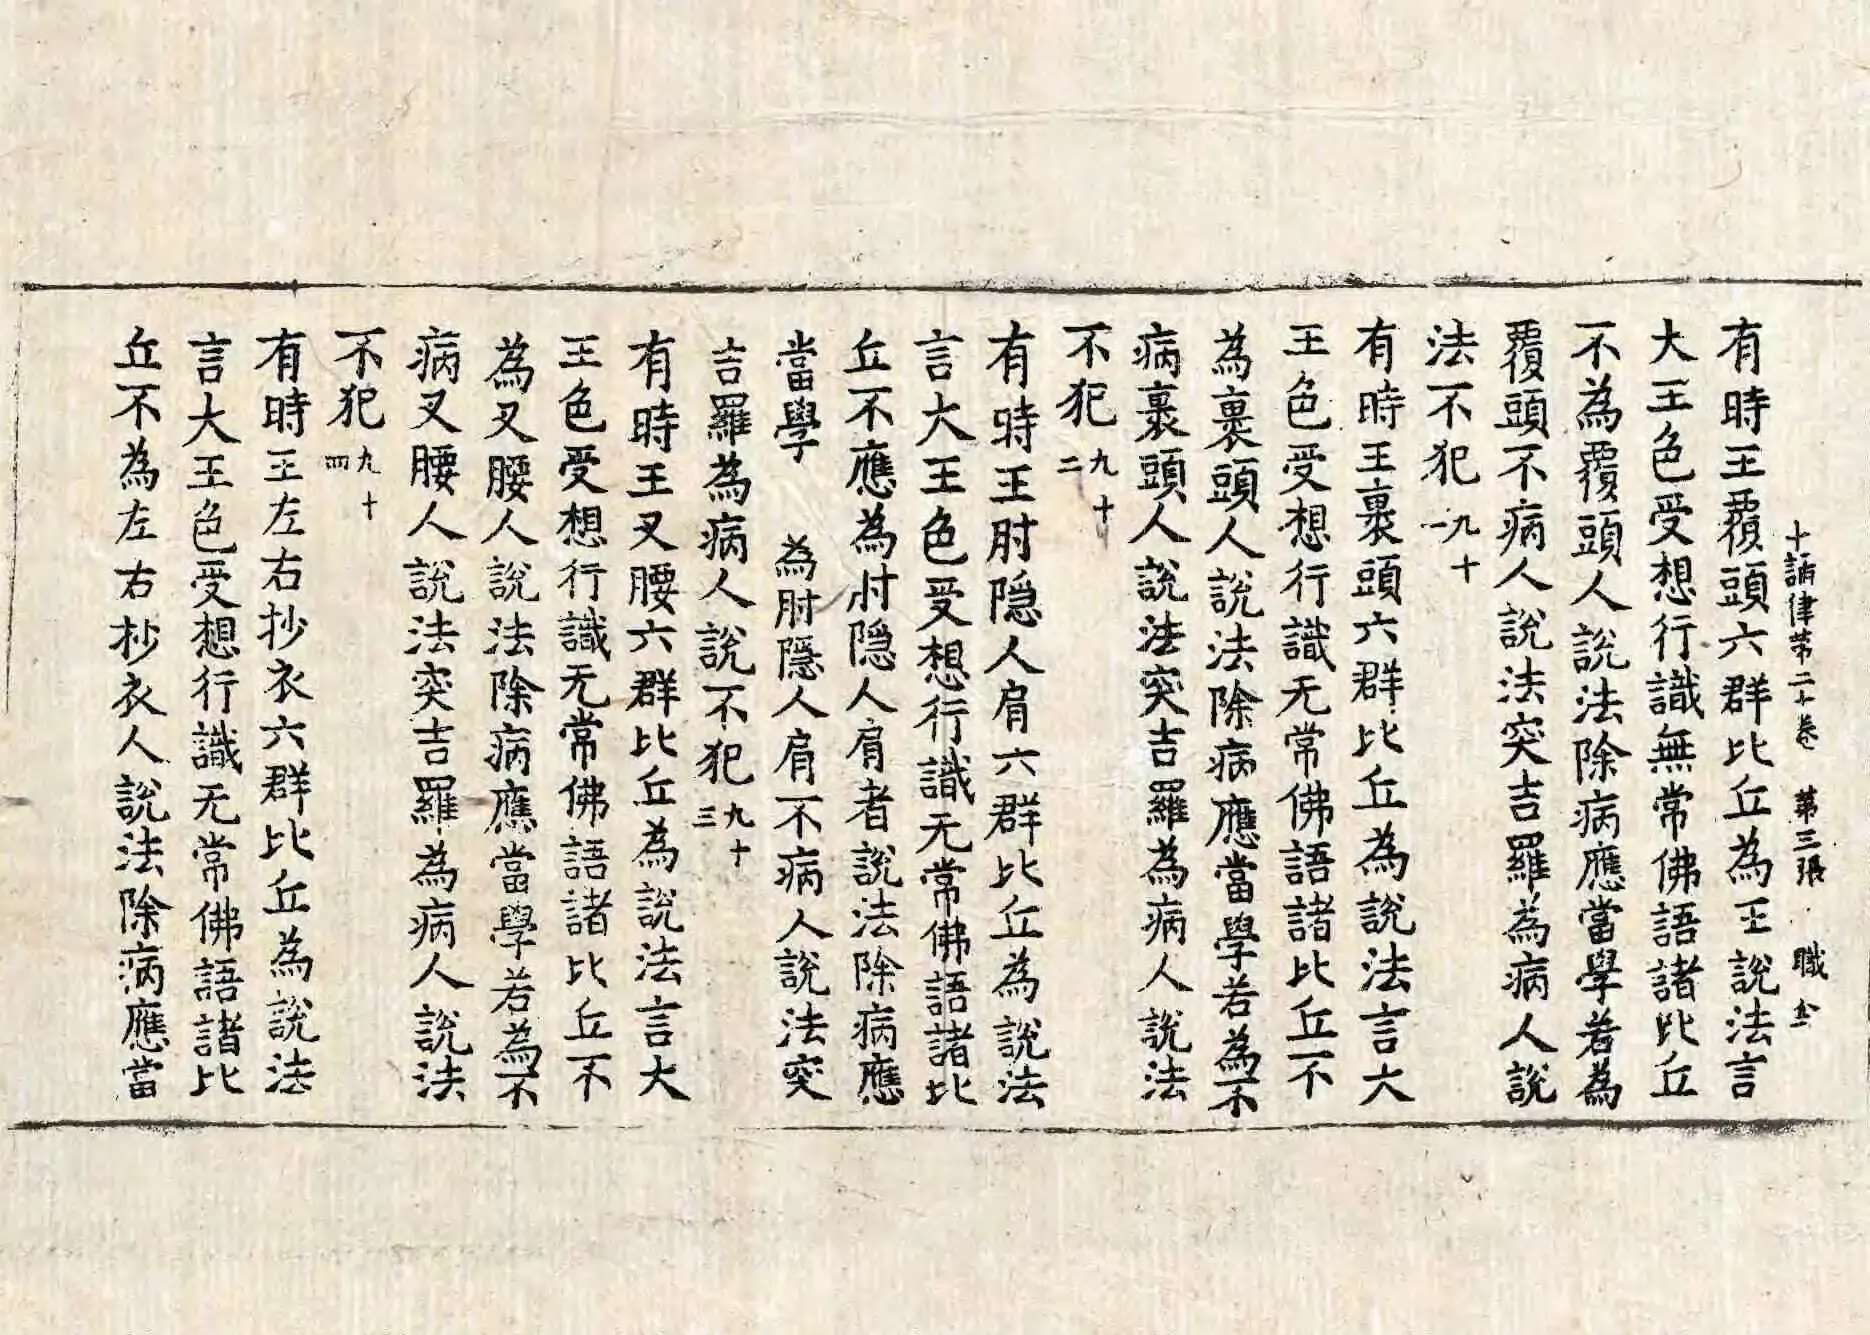 十誦律第二十卷 第三張 職
有時王覆頭六群比丘為王說法言
大王色受想行識無常佛語諸比丘
不為覆頭人說法除病應當學若為
覆頭不病人說法突吉羅為病人說
法不犯九十一
有時王裹頭六群比丘為說法言大
王色受想行識无常佛語諸比丘不
為裹頭人說法除病應當學若為不
病裹頭人說法突吉羅為病人說法
不犯九十二
有時王肘隐人肩六群比丘為說法
言大王色受想行識无常佛語諸比
丘不應為肘隐人肩者說法除病應
當學 為肘隱人肩不病人說法突
吉羅為病人說不犯九十三
有時王叉腰六群比丘為說法言大
王色受想行識无常佛語諸比丘不
為叉腰人說法除病應當學若為不
病叉腰人說法突吉羅為病人說法
不犯九十四
有時王左右抄衣六群比丘為說法
言大王色受想行識无常佛語諸比
丘不為左右杪衣人說法除病應當